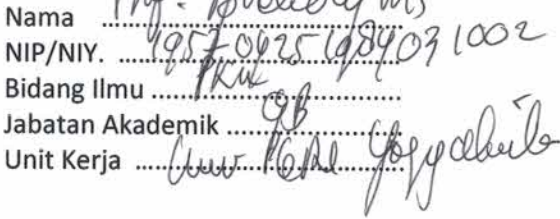 Nama ....................
NIP/NIY. 19570425 198403 1002
Bidang Ilmu ....................
Jabatan Akademik GB
Unit Kerja Univ PGRI Yogyakarta